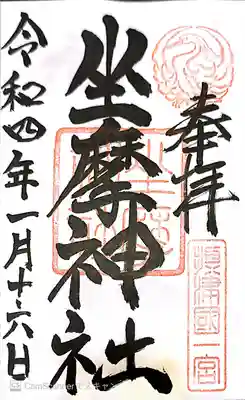 奉拝
摂津國一宮
坐摩神社
令和四年一月十六日
CamScanner